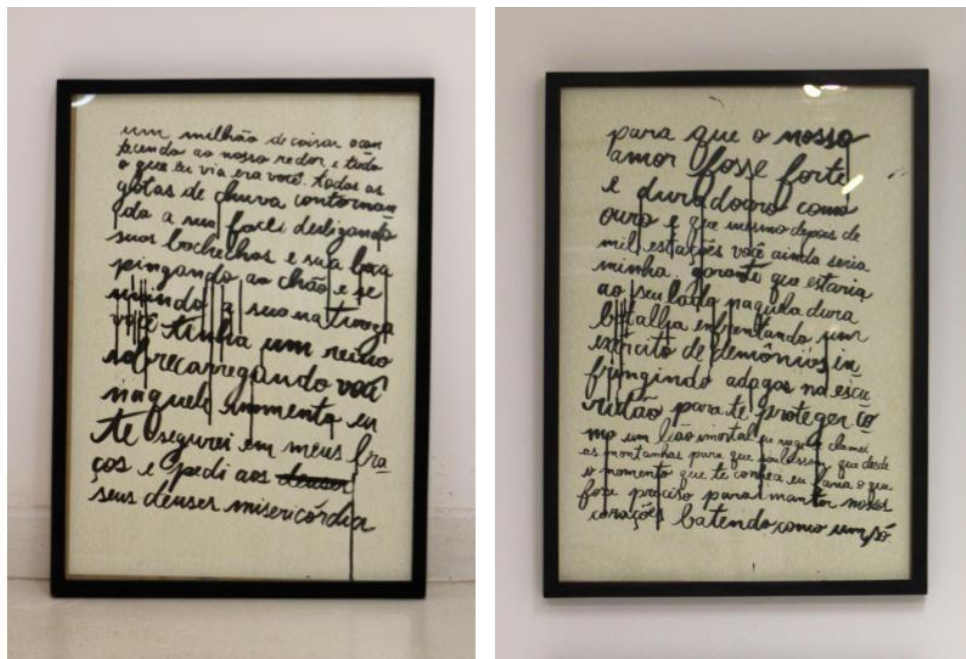 um milhão de coisas acon
tecendo ao nosso redor e tudo
o que eu via era você. todas as
gotas de chuva contornan
do a sua face deslizando
suas bochechas e sua boca
pingando ao chão e se
a sua natureza
você tinha um reino
sobrecarregando você
naquele momento eu
te segurei em meus bra
ços e pedi aos deuses
seus deuses misericórdia
para que o nosso
amor fosse forte
e duradouro como
ouro e que mesmo depois de
mil estações você ainda seria
minha. garanti que estaria
ao seu lado naquela dura
batalha enfrentando um
exército de demônios in
fringindo adagas na escu
ridão para te proteger co
mo um leão imortal eu rugi e clamei
as montanhas para que soubessem que desde
o momento que te conheci eu faria o que
fosse preciso para manter nossos
corações batendo como um só